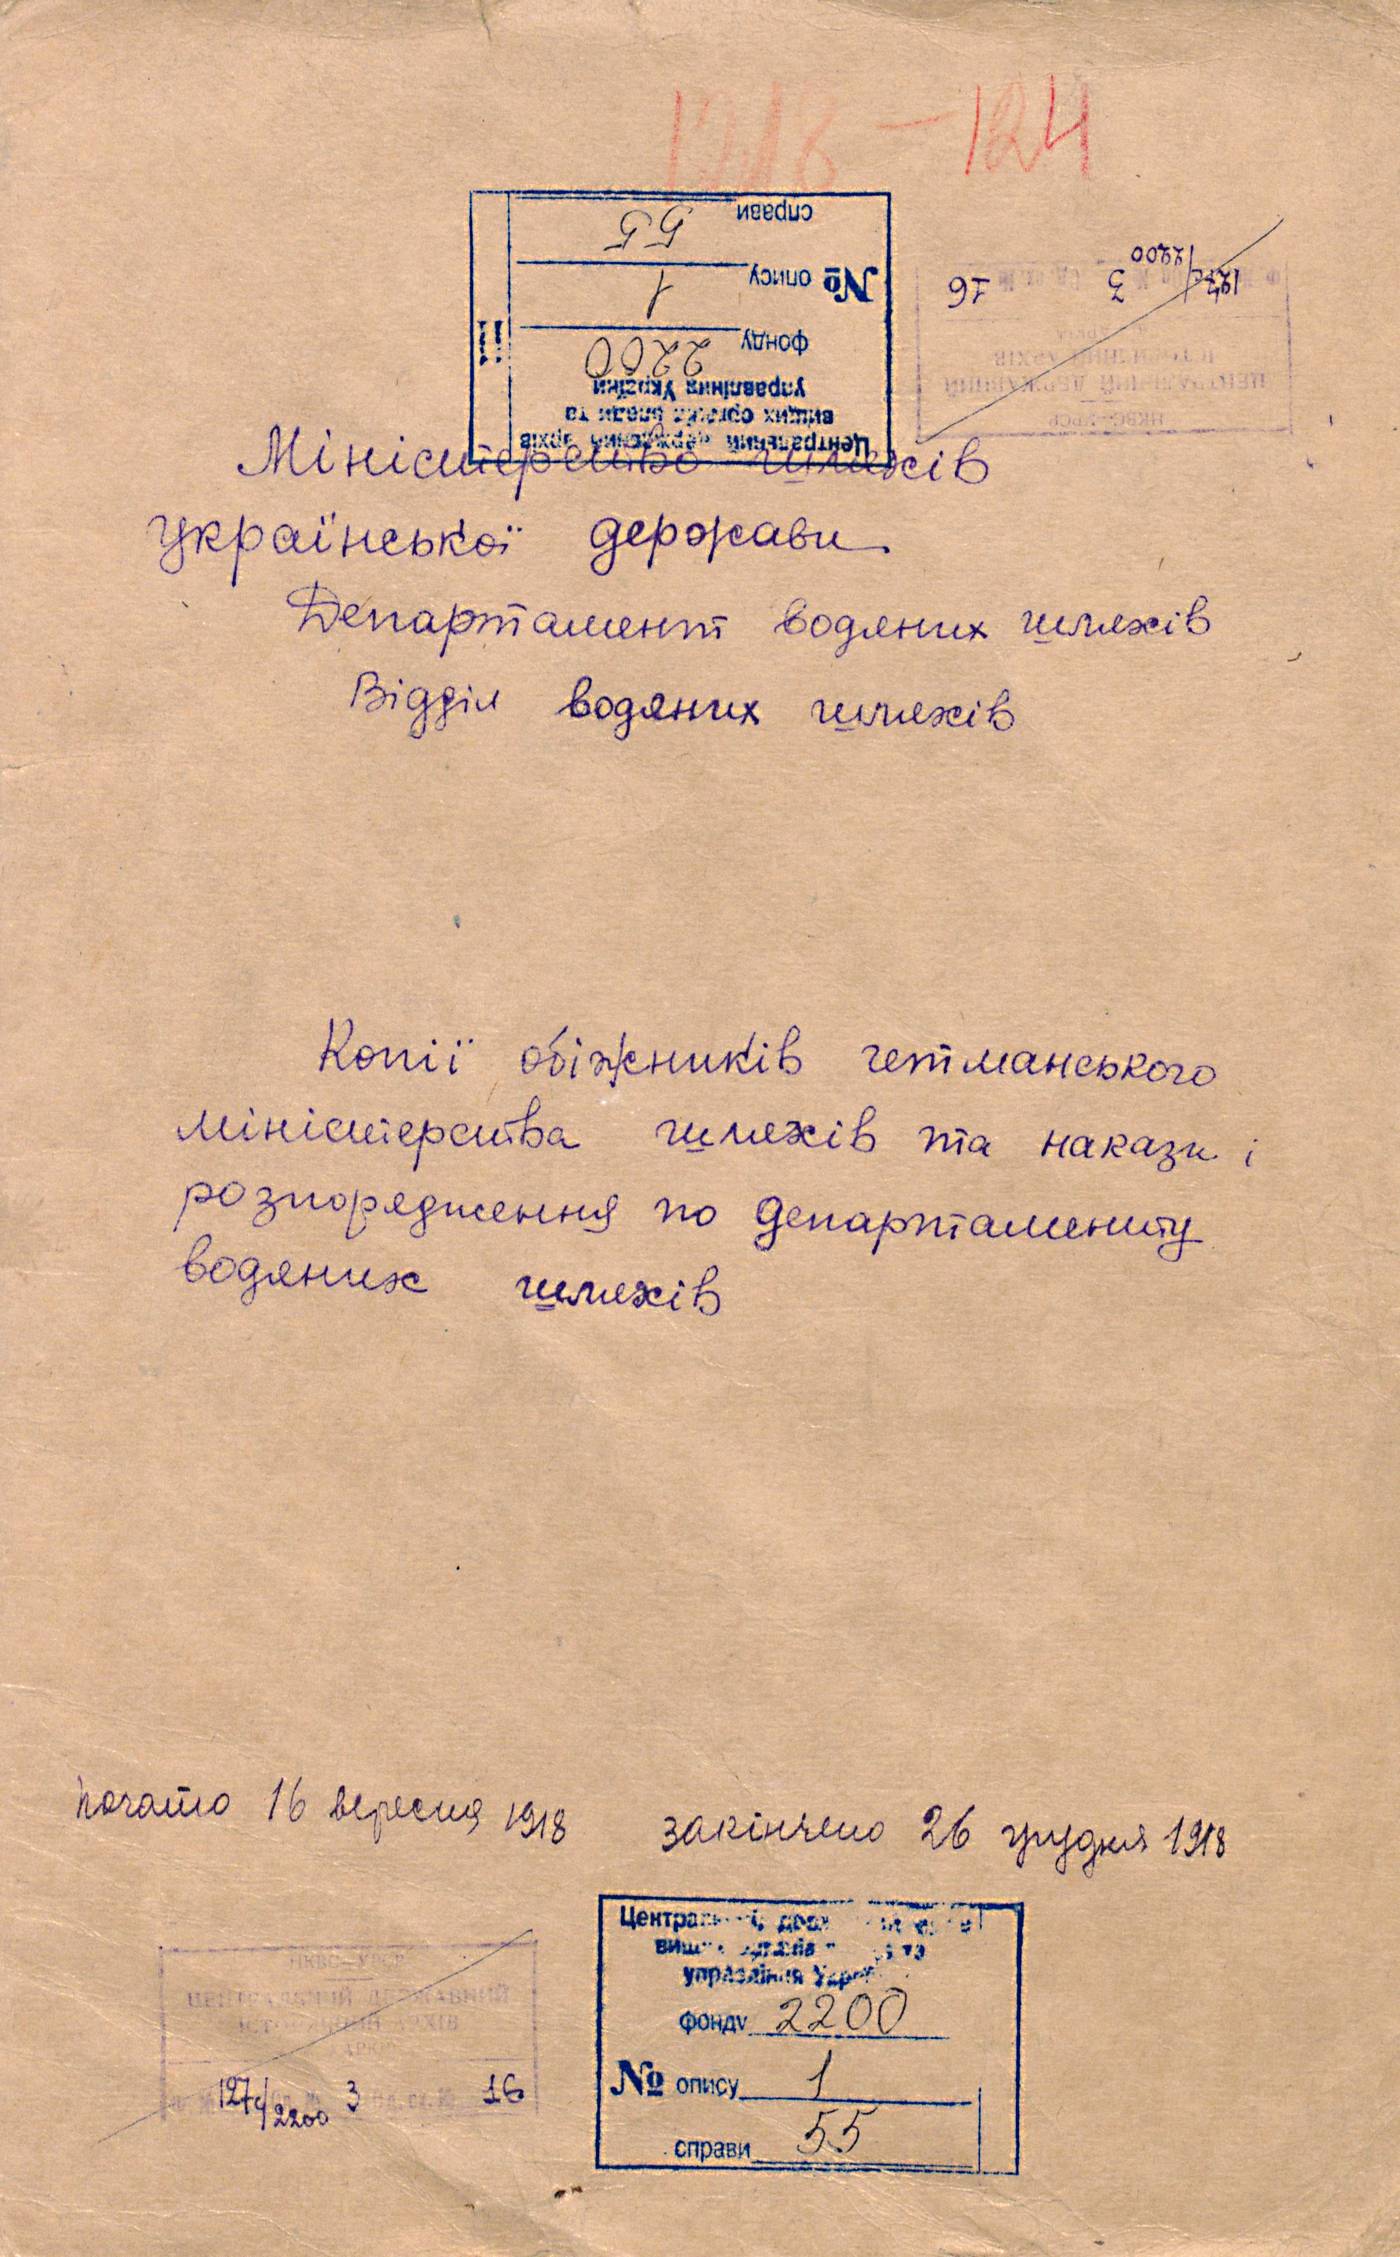 1918 – 124
Центральний державний архів
вищих органів влади та
управління України
фонду 2200
№ опису 1
справи 55
НКВС–УРСР
ЦЕНТРАЛЬНИЙ ДЕРЖАВНИЙ
ІСТОРИЧНИЙ АРХІВ
127с/2200 3 16
Міністерство шляхів
української держави
Департамент водяних шляхів
Відділ водяних шляхів
Копії обіжників гетманського
міністерства шляхів та накази і
розпорядження по департаменту
водяних шляхів
почато 16 вересня 1918 закінчено 26 грудня 1918
НКВС–УРСР
ЦЕНТРАЛЬНИЙ ДЕРЖАВНИЙ
ІСТОРИЧНИЙ АРХІВ
127с/2200 3 Од. сх. № 16
Центральний державний архів
вищих органів влади та
управління України
фонду 2200
№ опису 1
справи 55